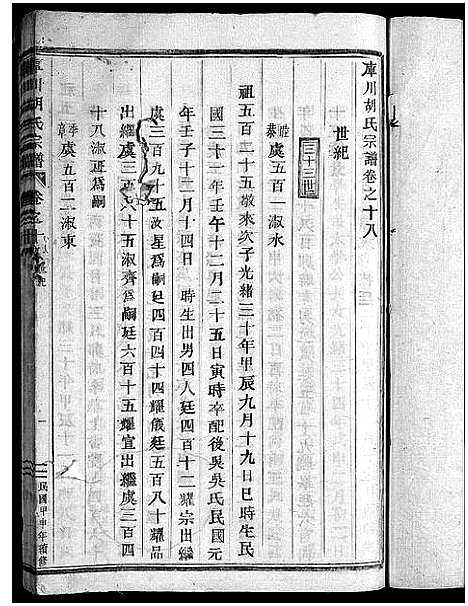 庫川胡氏宗譜卷之十八
世紀
三十三世
睦泰虞五百一淑水
祖五百二十五敬來次子光緒三十年甲辰九月十九日巳時生民
國三十一年壬午十二月二十五日寅時卒配後吳吳氏民國元
年壬子十二月十四日 時生出男四人廷四百十二耀宗出繼
虞三百九十五汝星為嗣廷四百四十四耀儀廷五百八十耀品
出繼虞三百六十五淑齊為嗣廷六百十五耀宣出繼虞三百四
十八淑廷為嗣
虞五百一淑東
川胡氏宗譜
卷之
民國甲申年續修